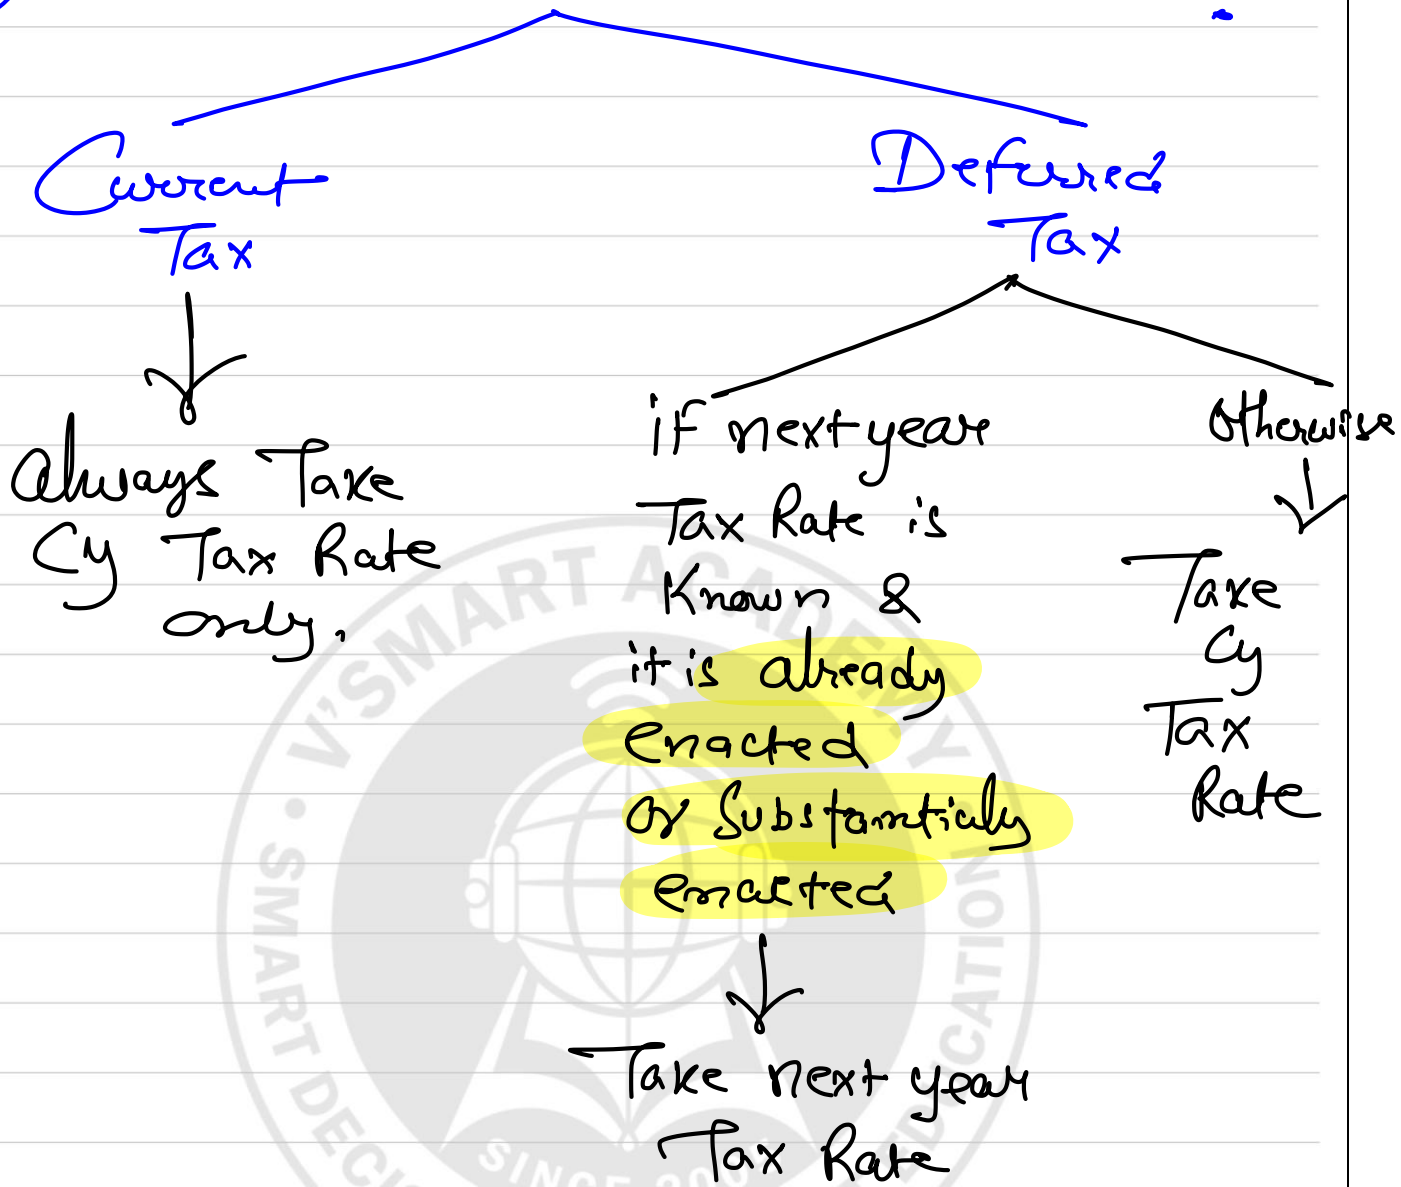 Current
Tax
Always Take
Cy Tax Rate
only.
Deferred
Tax
if next year
Tax Rate is
Known &
it is already
enacted
or Substantialy
enacted
Take next year
Tax Rate
otherwise
Take
Cy
Tax
Rate
V'SMART ACADEMY
SMART DECI
EDUCATION
SINCE 200